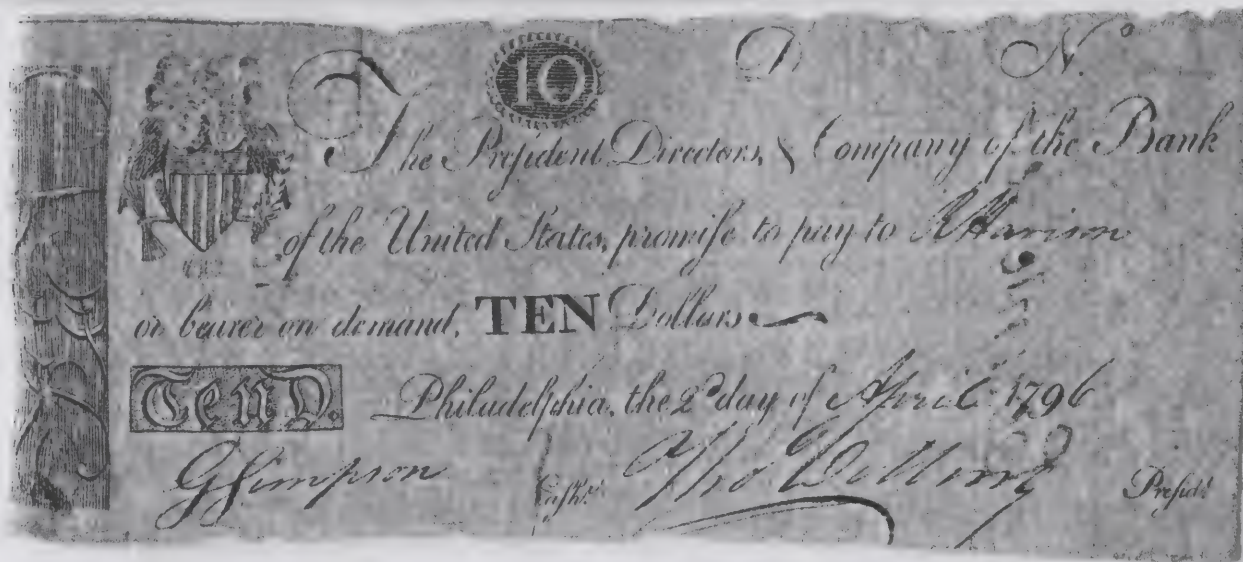 10 D N.º
The Preſident Directors, & Company of the Bank
of the United States, promiſe to pay to R Harison
or bearer on demand, TEN Dollars
Ten D. Philadelphia, the 2ᵈ day of April 1796
G Simpson Caſhʳ. Tho Willing Preſidᵗ.